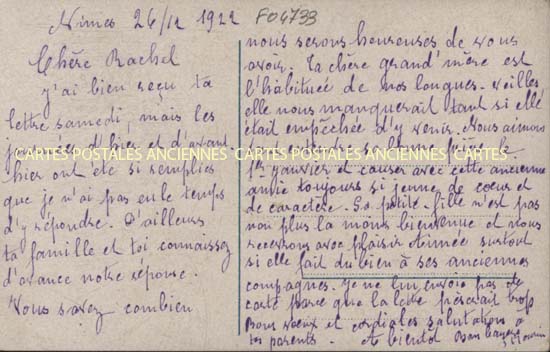 Nîmes 26/12 1922
F04733
Chère Rachel
j'ai bien reçu ta
lettre samedi, mais les
journées d'hier et d'avant
hier ont été si remplies
que je n'ai pas eu le temps
d'y répondre. D'ailleurs
ta famille et toi connaissez
d'avance notre réponse.
Vous savez combien
nous serons heureuses de vous
avoir. Ta chère grand'mère est
l'habituée de nos longues veilles,
elle nous manquerait tant si elle
était empêchée d'y venir. Nous aimons
1er janvier et causer avec cette ancienne
amie toujours si jeune de cœur et
de caractère. Sa petite-fille n'est pas
non plus la moins bienvenue et nous
recevrons avec plaisir Aimée surtout
si elle fait du bien à ses anciennes
compagnes. Je ne lui envoie pas de
carte parce que la lettre pèserait trop
Bons vœux et cordiales salutations à
tes parents. A bientôt Bon baiser
CARTES POSTALES ANCIENNES CARTES POSTALES ANCIENNES CARTES